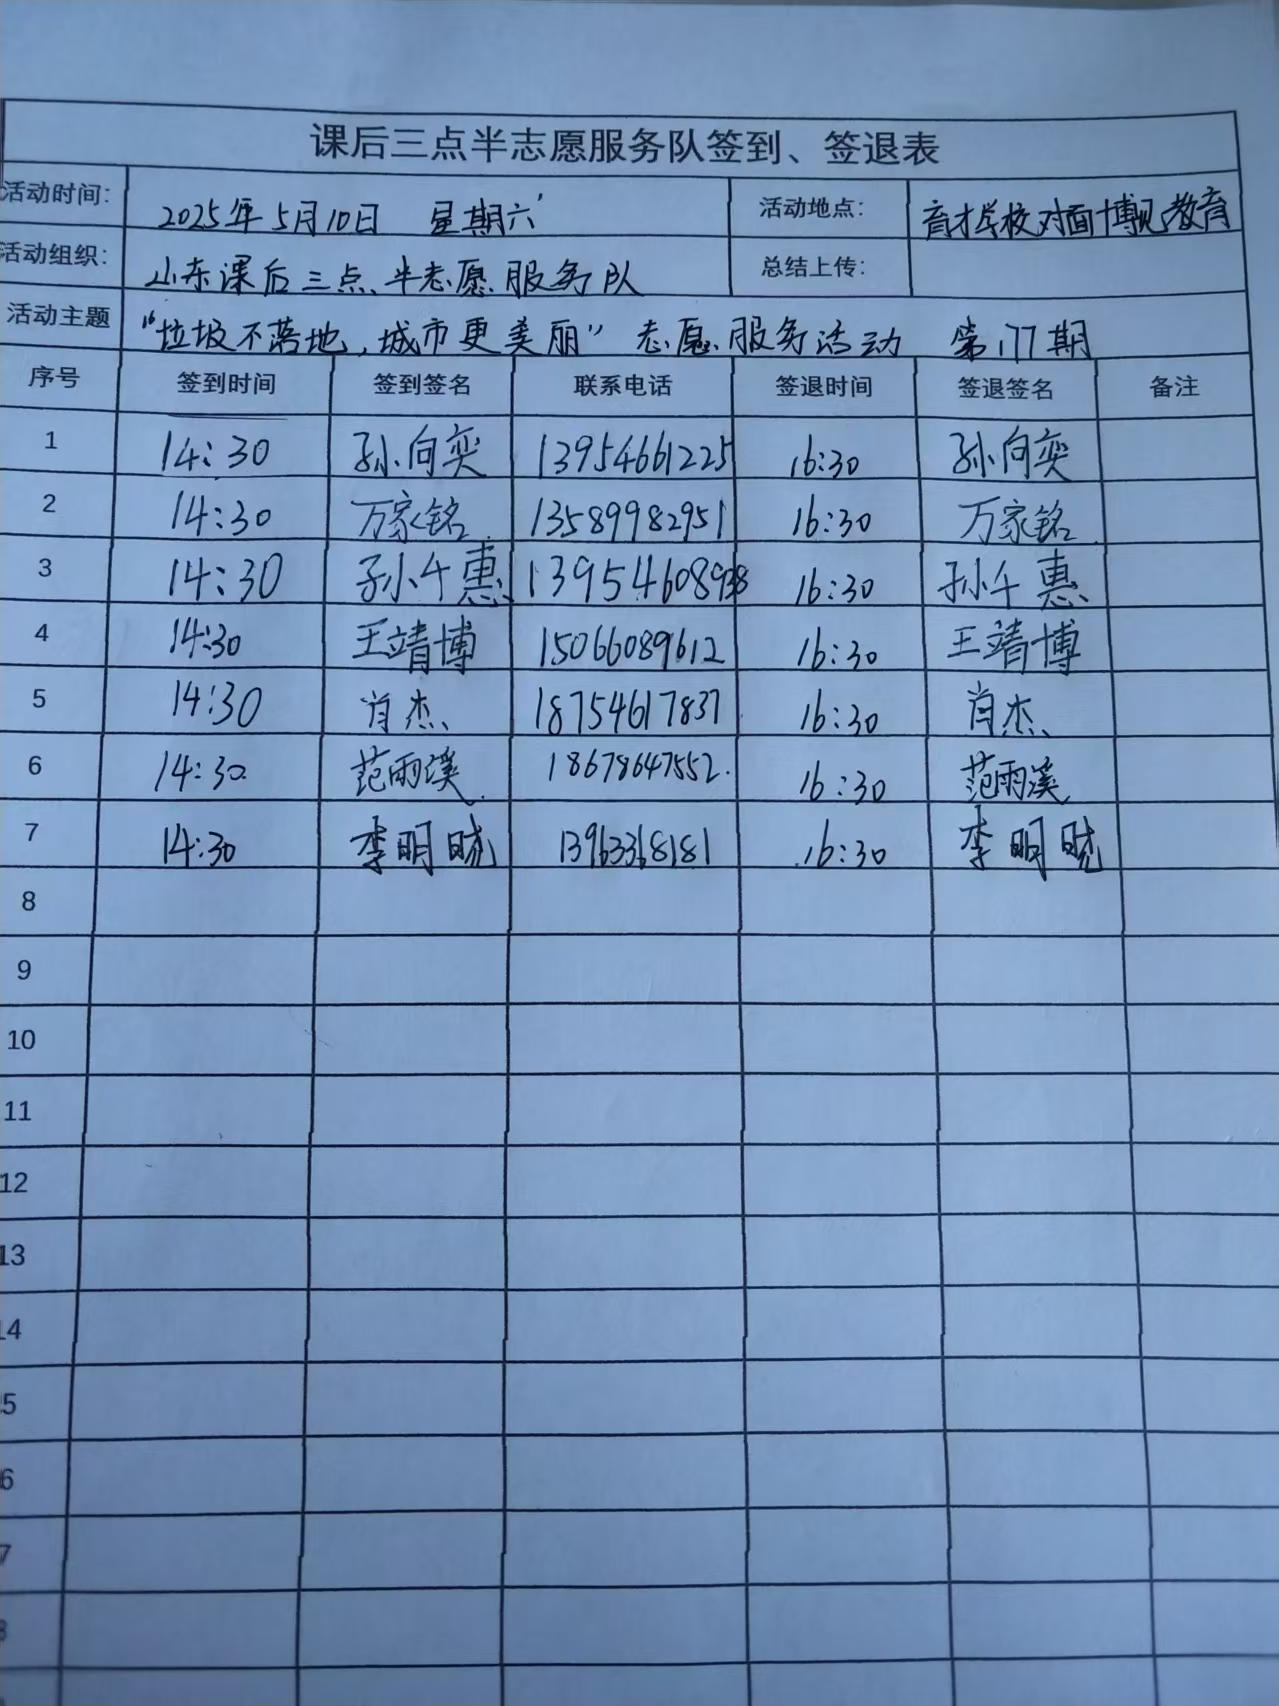 课后三点半志愿服务队签到、签退表
活动时间: 2025年5月10日 星期六 活动地点: 育才学校对面博见教育
活动组织: 山东课后三点半志愿服务队 总结上传:
活动主题 “垃圾不落地,城市更美丽” 志愿服务活动 第177期
序号 签到时间 签到签名 联系电话 签退时间 签退签名 备注
1 14:30 孙向奕 13954661225 16:30 孙向奕
2 14:30 万家铭 13589982951 16:30 万家铭
3 14:30 孙千惠 13954608938 16:30 孙千惠
4 14:30 王靖博 15066089612 16:30 王靖博
5 14:30 肖杰 18754617837 16:30 肖杰
6 14:30 范雨溪 18678647552 16:30 范雨溪
7 14:30 李明晓 13963368181 16:30 李明晓
8
9
10
11
12
13
14
5
6
7